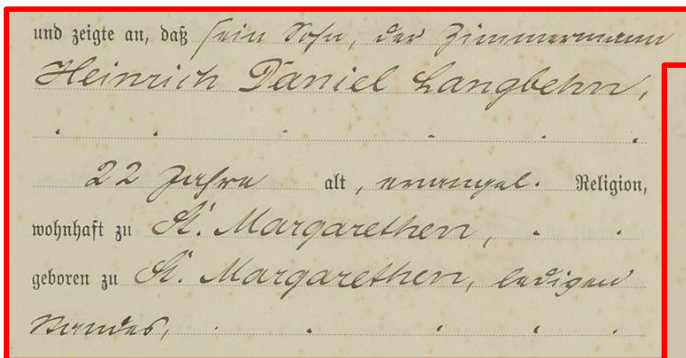 und zeigte an, daß sein Sohn, der Zimmermann
Heinrich Daniel Langbehn,
22 Jahre alt, evangel. Religion,
wohnhaft zu St. Margarethen,
geboren zu St. Margarethen, ledigen
Standes,